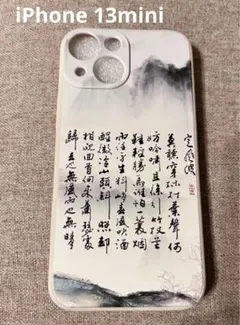 iPhone 13mini
定風波
莫聽穿林打葉聲何
妨吟嘯且徐行竹杖芒
鞋輕勝馬誰怕一蓑烟
雨任平生料峭春風吹酒
醒微冷山頭斜照却
相迎回首向來蕭瑟處
歸去也無風雨也無晴